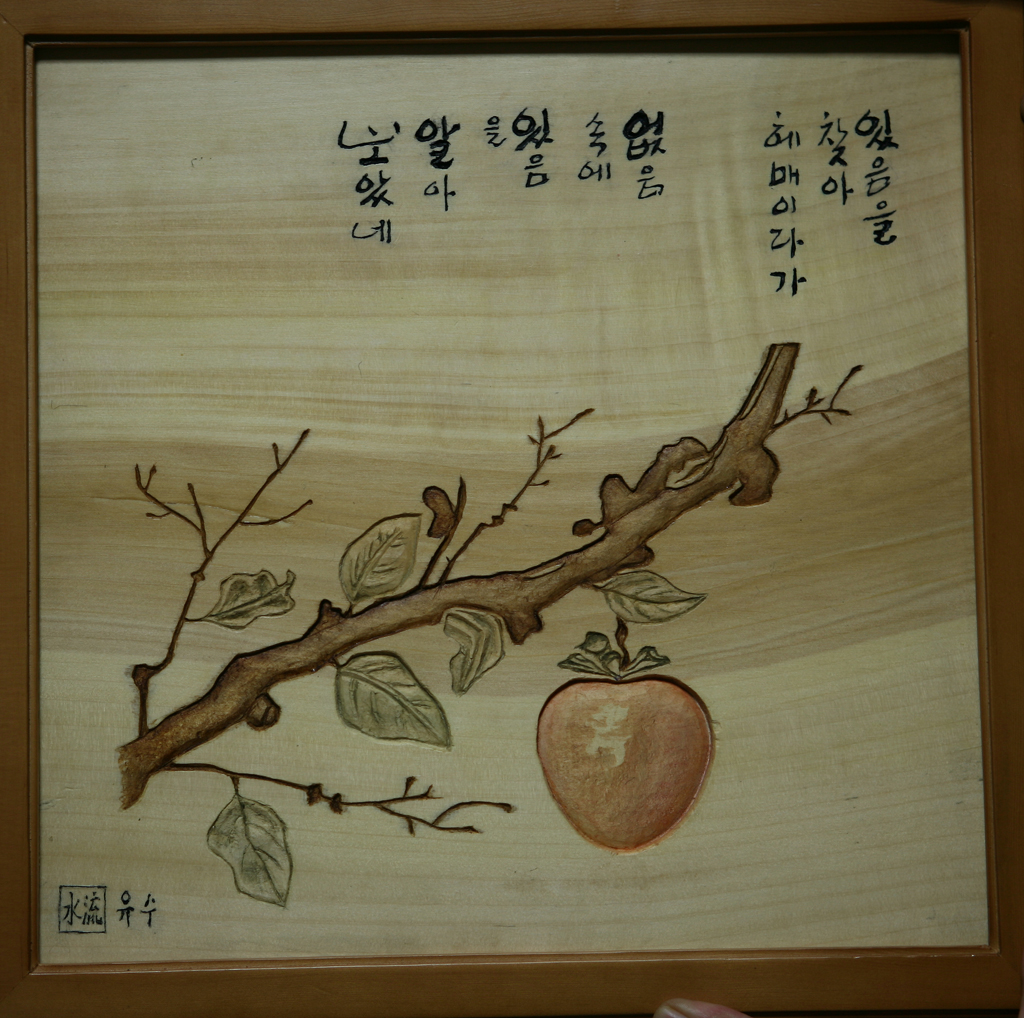 있음을
찾아
헤매이다가
없음
속에
있음
을
알아
보았네
流水 유수